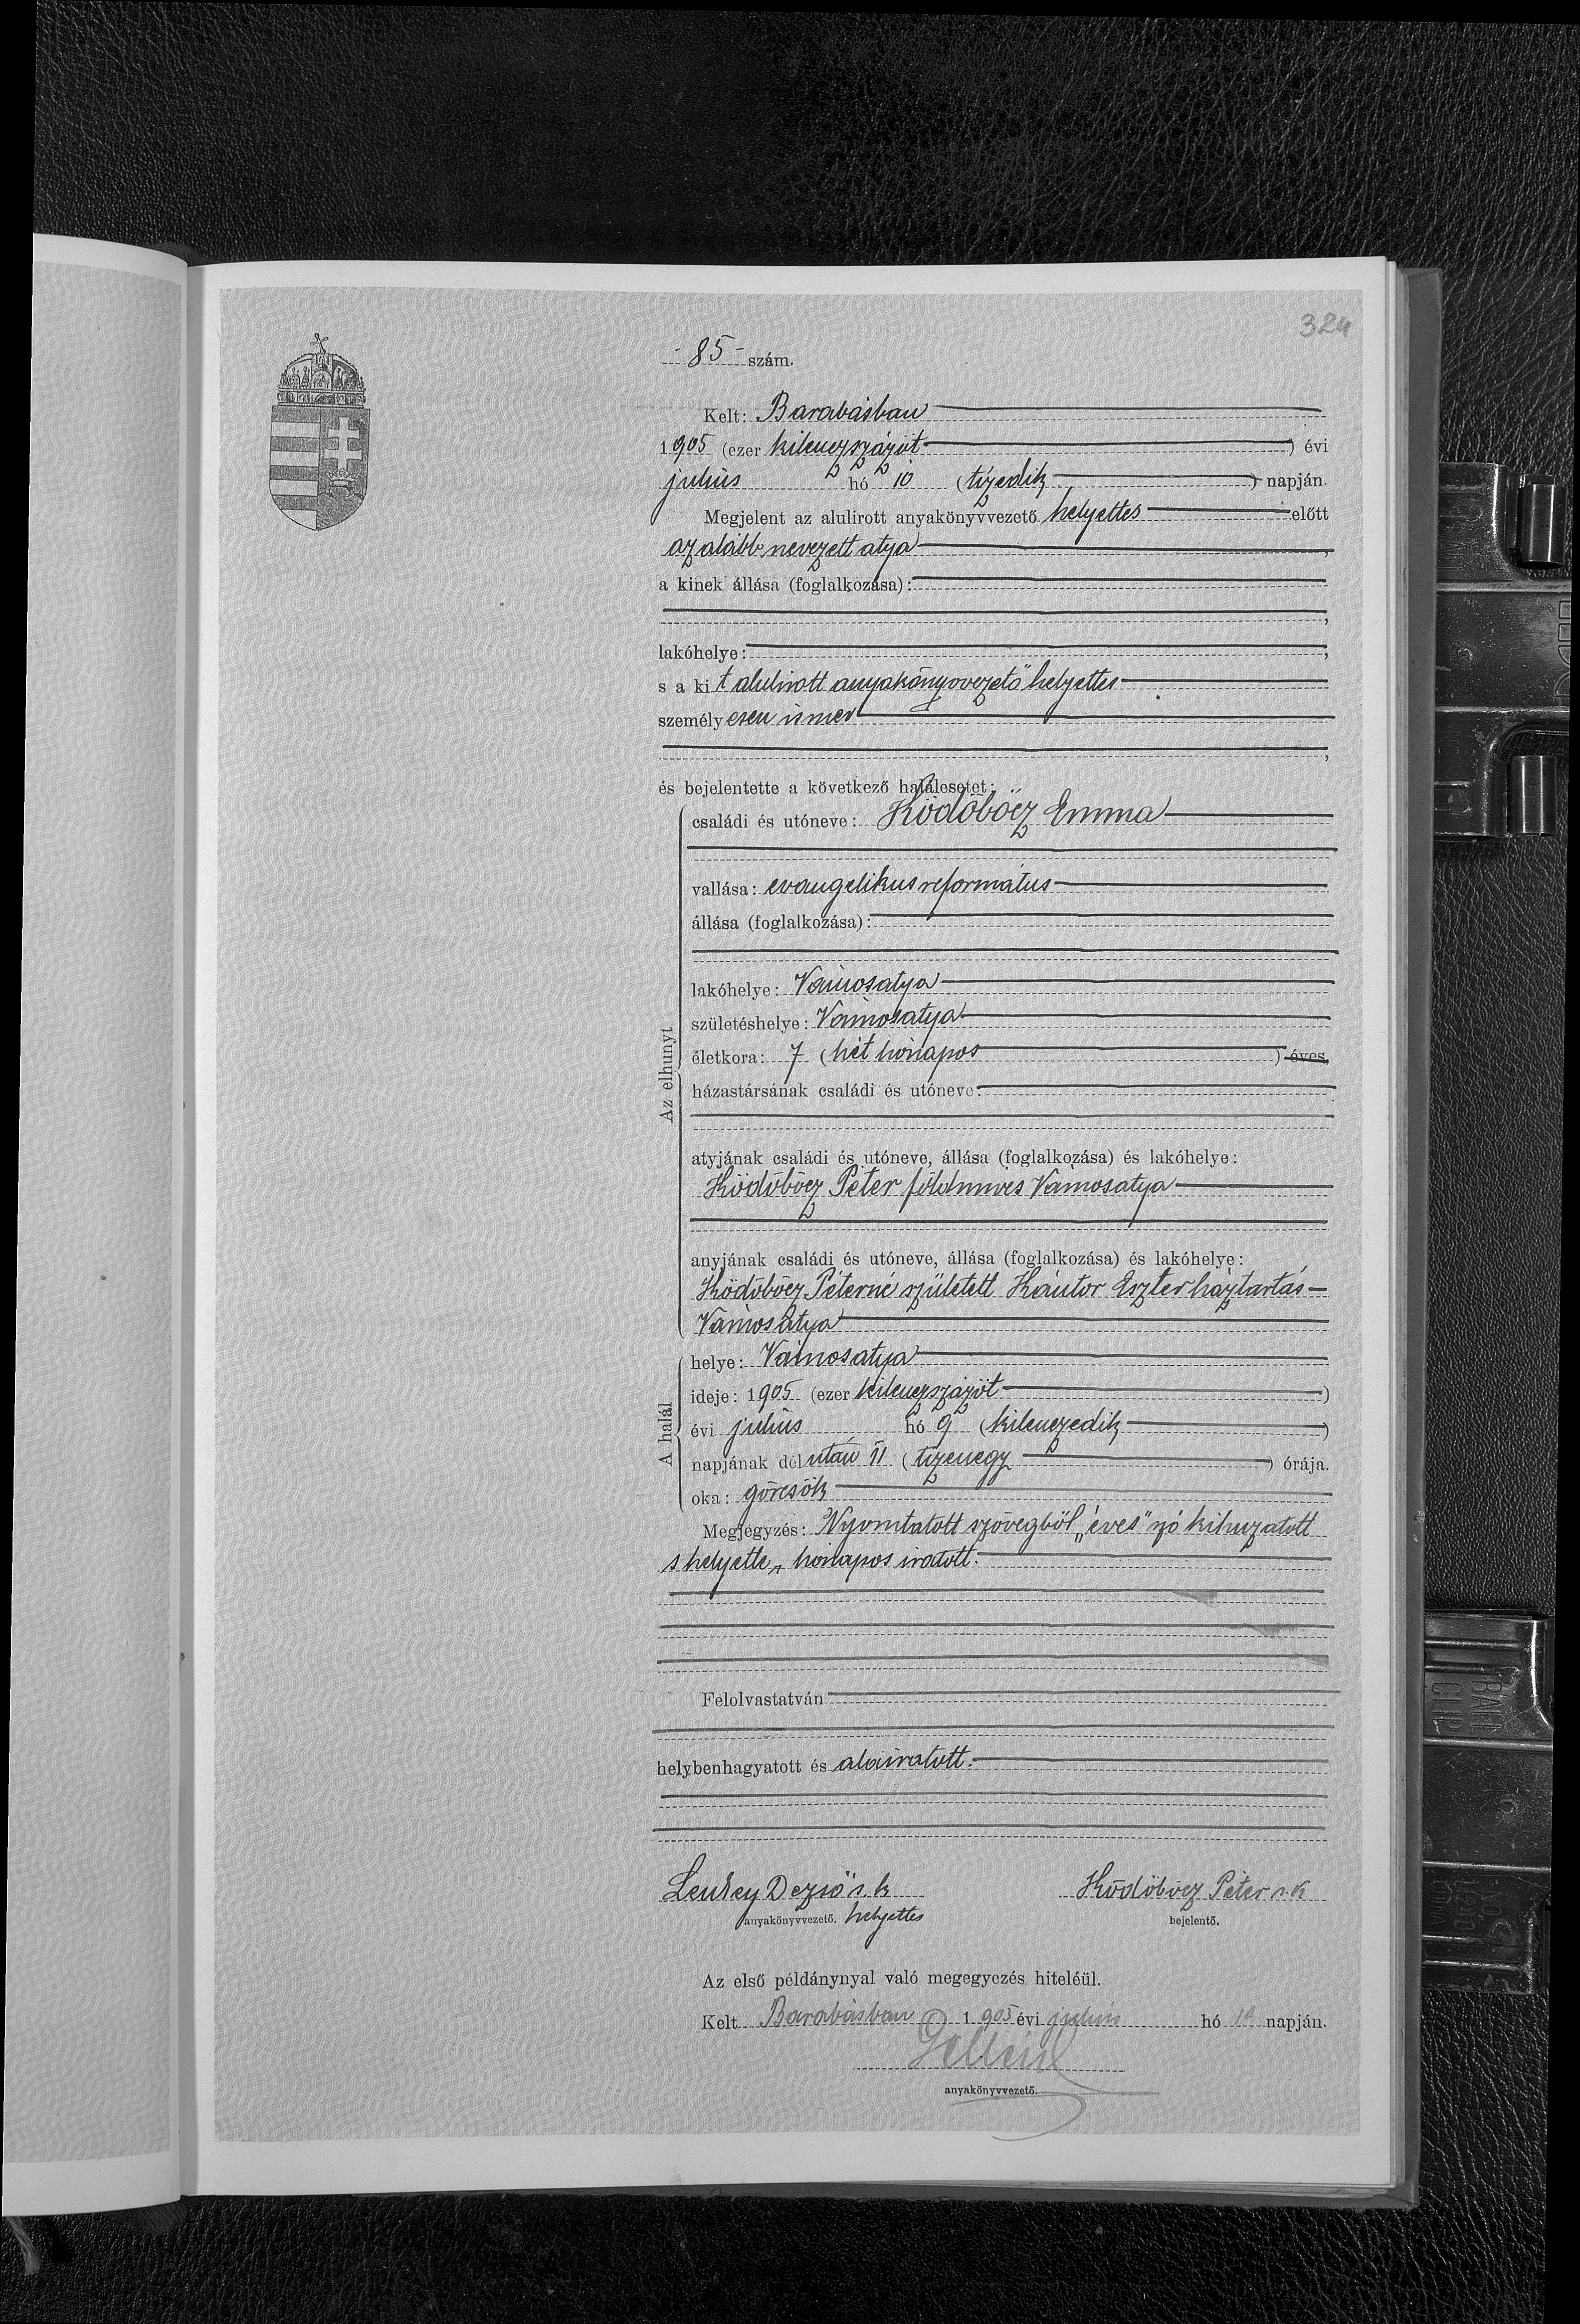 324
- 85 - szám.
Kelt: Barabásban
1905 (ezer kilenczszázöt) évi
julius hó 10 (tizedik) napján.
Megjelent az alulirott anyakönyvvezető helyettes előtt
az alább nevezett atya,
a kinek állása (foglalkozása):
,
lakóhelye: ,
s a kit alulirott anyakönyvvezető helyettes
személyesen ismer
,
és bejelentette a következő halálesetet:
Az elhunyt
családi és utóneve: Ködöböcz Emma
vallása: evangelikus református
állása (foglalkozása):
lakóhelye: Vámosatya
születéshelye: Vámosatya
életkora: 7 (hét hónapos) éves,
házastársának családi és utóneve:
atyjának családi és utóneve, állása (foglalkozása) és lakóhelye:
Ködöböcz Péter földmíves Vámosatya
anyjának családi és utóneve, állása (foglalkozása) és lakóhelye:
Ködöböcz Péterné született Kántor Eszter háztartás
Vámosatya
A halál
helye: Vámosatya
ideje: 1905 (ezer kilenczszázöt)
évi julius hó 9 (kilenczedik)
napjának délután 11 (tizenegy) órája.
oka: görcsök
Megjegyzés: Nyomtatott szövegből „éves" szó kihuzatott
s helyette „ hónapos iratott.
Felolvastatván
helybenhagyatott és aláiratott.
Dezső s. k Ködöböcz Péter s. k
anyakönyvvezető. helyettes bejelentő.
Az első példánynyal való megegyezés hiteléül.
Kelt Barabásban 1905 évi julius hó 10 napján.
anyakönyvvezető.